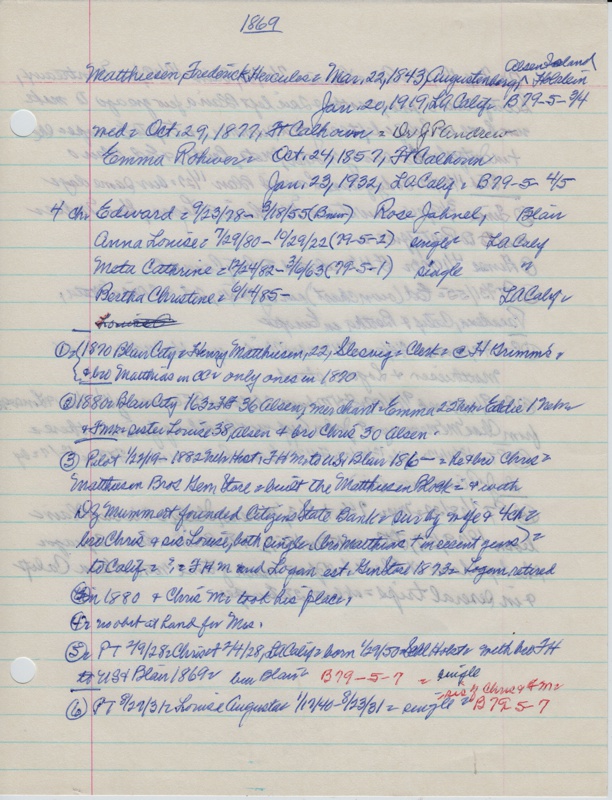 1869
Alsen Island
Matthiesen, Frederick Hercules = Mar. 22, 1843, Augustenberg, Holstein
Jan. 20, 1919, LA Calif = B79-5-3/4
med = Oct. 29, 1877, Ft Calhoun =
Emma Rohwer = Oct. 24, 1857, Ft Calhoun
Jan. 23, 1932, LA Calif. B79-5-4/5
4 ch. Edward = 9/23/78- 3/18/55 Rose Jahnel, Blair
Anna Louise = 7/29/80-10/29/22 (79-5-2) single LA Calif
Meta Catherine = 12/24/82-3/6/63 (79-5-1) single "
Bertha Christine = 9/4/85- LA Calif
Louise
① 1870 Blair City = Henry Matthiesen, 22, Slesvig = Clerk = c H Grimm's
& bro Matthias in OC = only ones in 1870
② 1880 = Blair City 163 = FH 36 Alsen, merchant = Emma 23 Eddie 1
sister Louise 38 Alsen & bro Chris 30 Alsen.
③ Pilot 1/22/19 = FH M to US & Blair 186- = he & bro Chris =
Matthiesen Bros Gen Store = built the Matthiesen Block = & with
DZ Mummert founded Citizens State Bank = sur by wife & 4 ch =
bro Chris & sis Louise, both single (bro Matthias + in recent years) =
to Calif = ? = FHM and Logan est. Gen Store 1873 = Logan retired
in 1880 & Chris M took his place,
④ = no obit at hand for Mrs.
⑤ = PT 2/9/28 = Chris + 2/4/28, LA Calif = born 1/29/50 with bro FH
to US & Blair 1869 = bur Blair = B79-5-7 = single
sis of Chris & FM =
⑥ PT 8/27/31 = Louise Augusta = 1/12/40-8/23/31 = single = B79-5-7